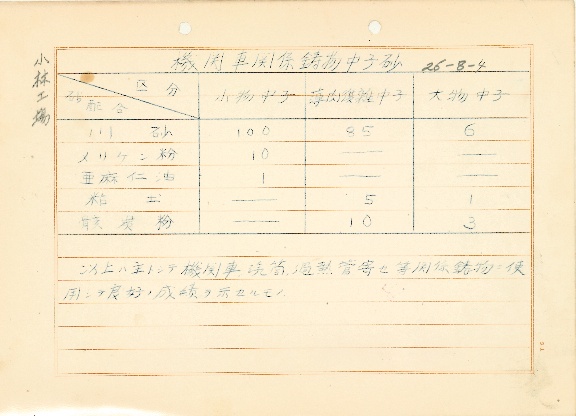 小林工場
機関車関係鋳物中子砂 26-8-4
区分
砂配合
小物中子 薄肉複雑中子 大物中子
川砂 100 85 6
メリケン粉 10 — —
亜麻仁油 1 — —
粘土 — 5 1
骸炭粉 — 10 3
以上ハ主トシテ機関車汽筒、過熱管寄セ等関係鋳物ニ使
用シテ良好ノ成績ヲ示セルモノ